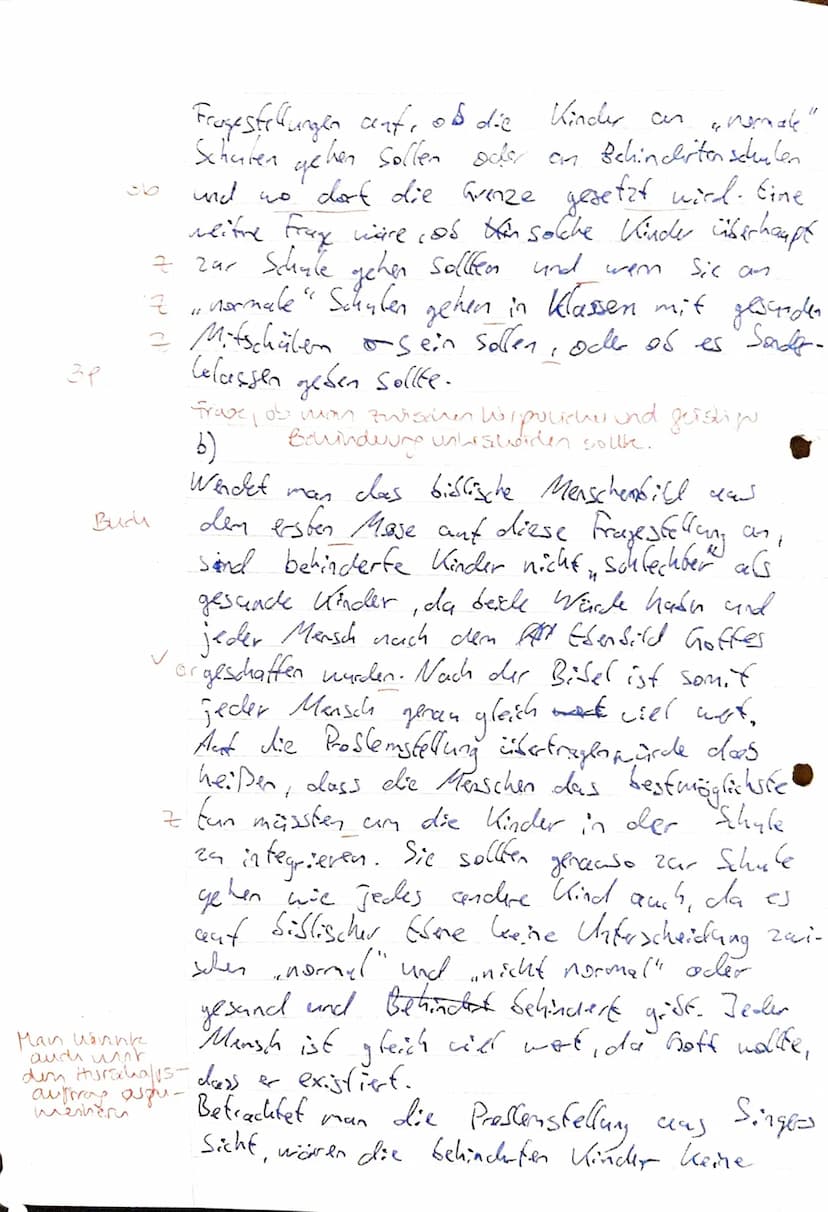 Fragestellungen auf, ob die Kinder an „normale"
Schulen gehen sollen oder an Behindertenschulen
ob und wo dort die Grenze gesetzt wird. Eine
weitre Frage wäre, ob solche Kinder überhaupt
Z zur Schule gehen sollten und wenn sie an
Z „normale" Schulen gehen in Klassen mit gesunden
Z Mitschülern sein sollen, oder ob es Sonder-
3P klassen geben sollte.
Frage, ob man zwischen körperlicher und geistiger
Behinderung unterscheiden sollte.
b)
Wendet man das biblische Menschenbild aus
Buch dem ersten Mose auf diese Fragestellung an,
sind behinderte Kinder nicht „schlechter" als
gesunde Kinder, da beide Würde haben und
jeder Mensch nach dem Ebenbild Gottes
✓ geschaffen wurden. Nach der Bibel ist somit
jeder Mensch genau gleich viel wert.
Auf die Problemstellung übertragen würde das
heißen, dass die Menschen das bestmöglichste
Z tun müssten um die Kinder in der Schule
zu integrieren. Sie sollten genauso zur Schule
gehen wie jedes andere Kind auch, da es
auf biblischer Ebene keine Unterscheidung zwi-
schen „normal" und „nicht normal" oder
gesund und behindert gibt. Jeder
Mensch ist gleich viel wert, da Gott wollte,
dass er existiert.
Man könnte
auch mit
dem Herrschafts-
auftrag argu-
mentieren
Betrachtet man die Problemstellung aus Singers
Sicht, wären die behinderten Kinder keine